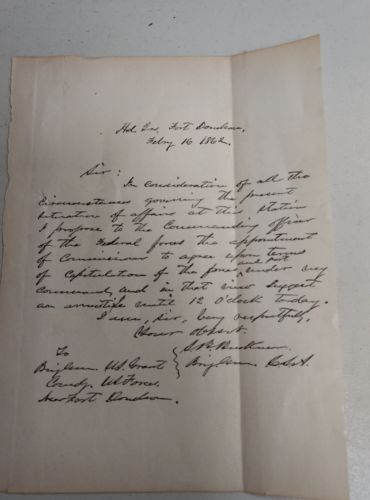 Hd Qrs, Fort Donelson,
Febry 16 1862.
Sir:
In consideration of all the
Circumstances governing the present
situation of affairs at this station
I propose to the Commanding officer
of the Federal forces the appointment
of Commissioners to agree upon terms
of Capitulation of the forces and post under my
command, and in that view suggest
an armistice until 12 O'clock today.
I am, sir, very respectfully,
Your Obt Svt.
To
S. B. Buckner
Brig Genl U.S. Grant
Brig Gen. C.S.A.
Comdg US Forces,
Near Fort Donelson.